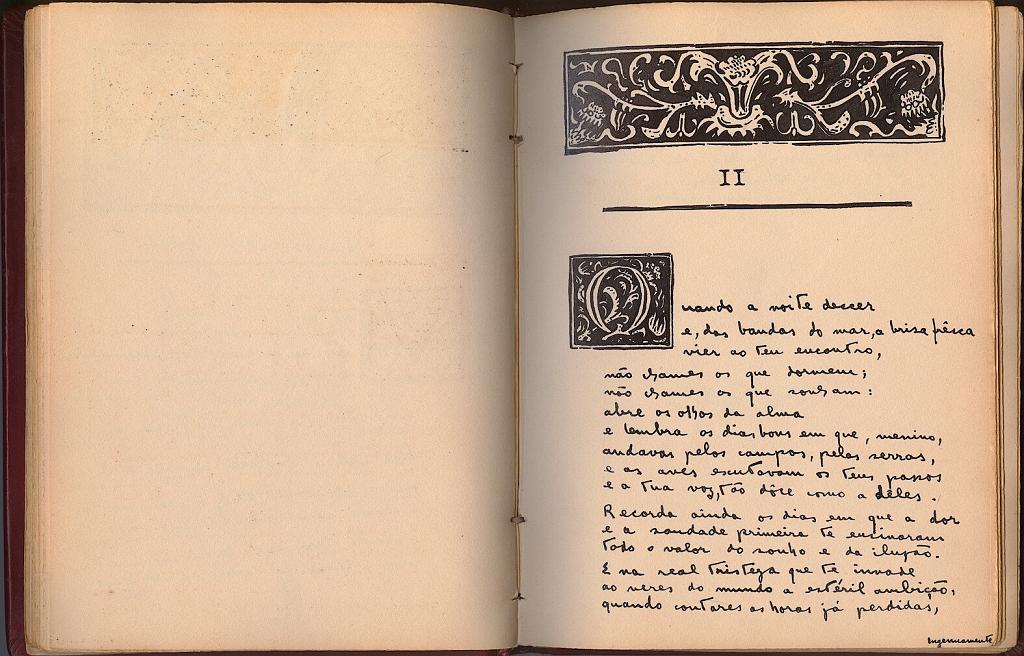 II
Quando a noite descer
e, das bandas do mar, a brisa frêsca
vier ao teu encontro,
não chames os que dormem;
não chames os que sonham:
abre os olhos da alma
e lembra os dias bons em que, menino,
andavas pelos campos, pelas serras,
e as aves escutavam os teus passos
e a tua voz, tão dôce como a deles.
Recorda ainda os dias em que a dor
e a saudade primeira te ensinaram
todo o valor do sonho e da ilusão.
E na real tristeza que te invade
ao veres do mundo a estéril ambição,
quando contares as horas já perdidas,
Ingenuamente